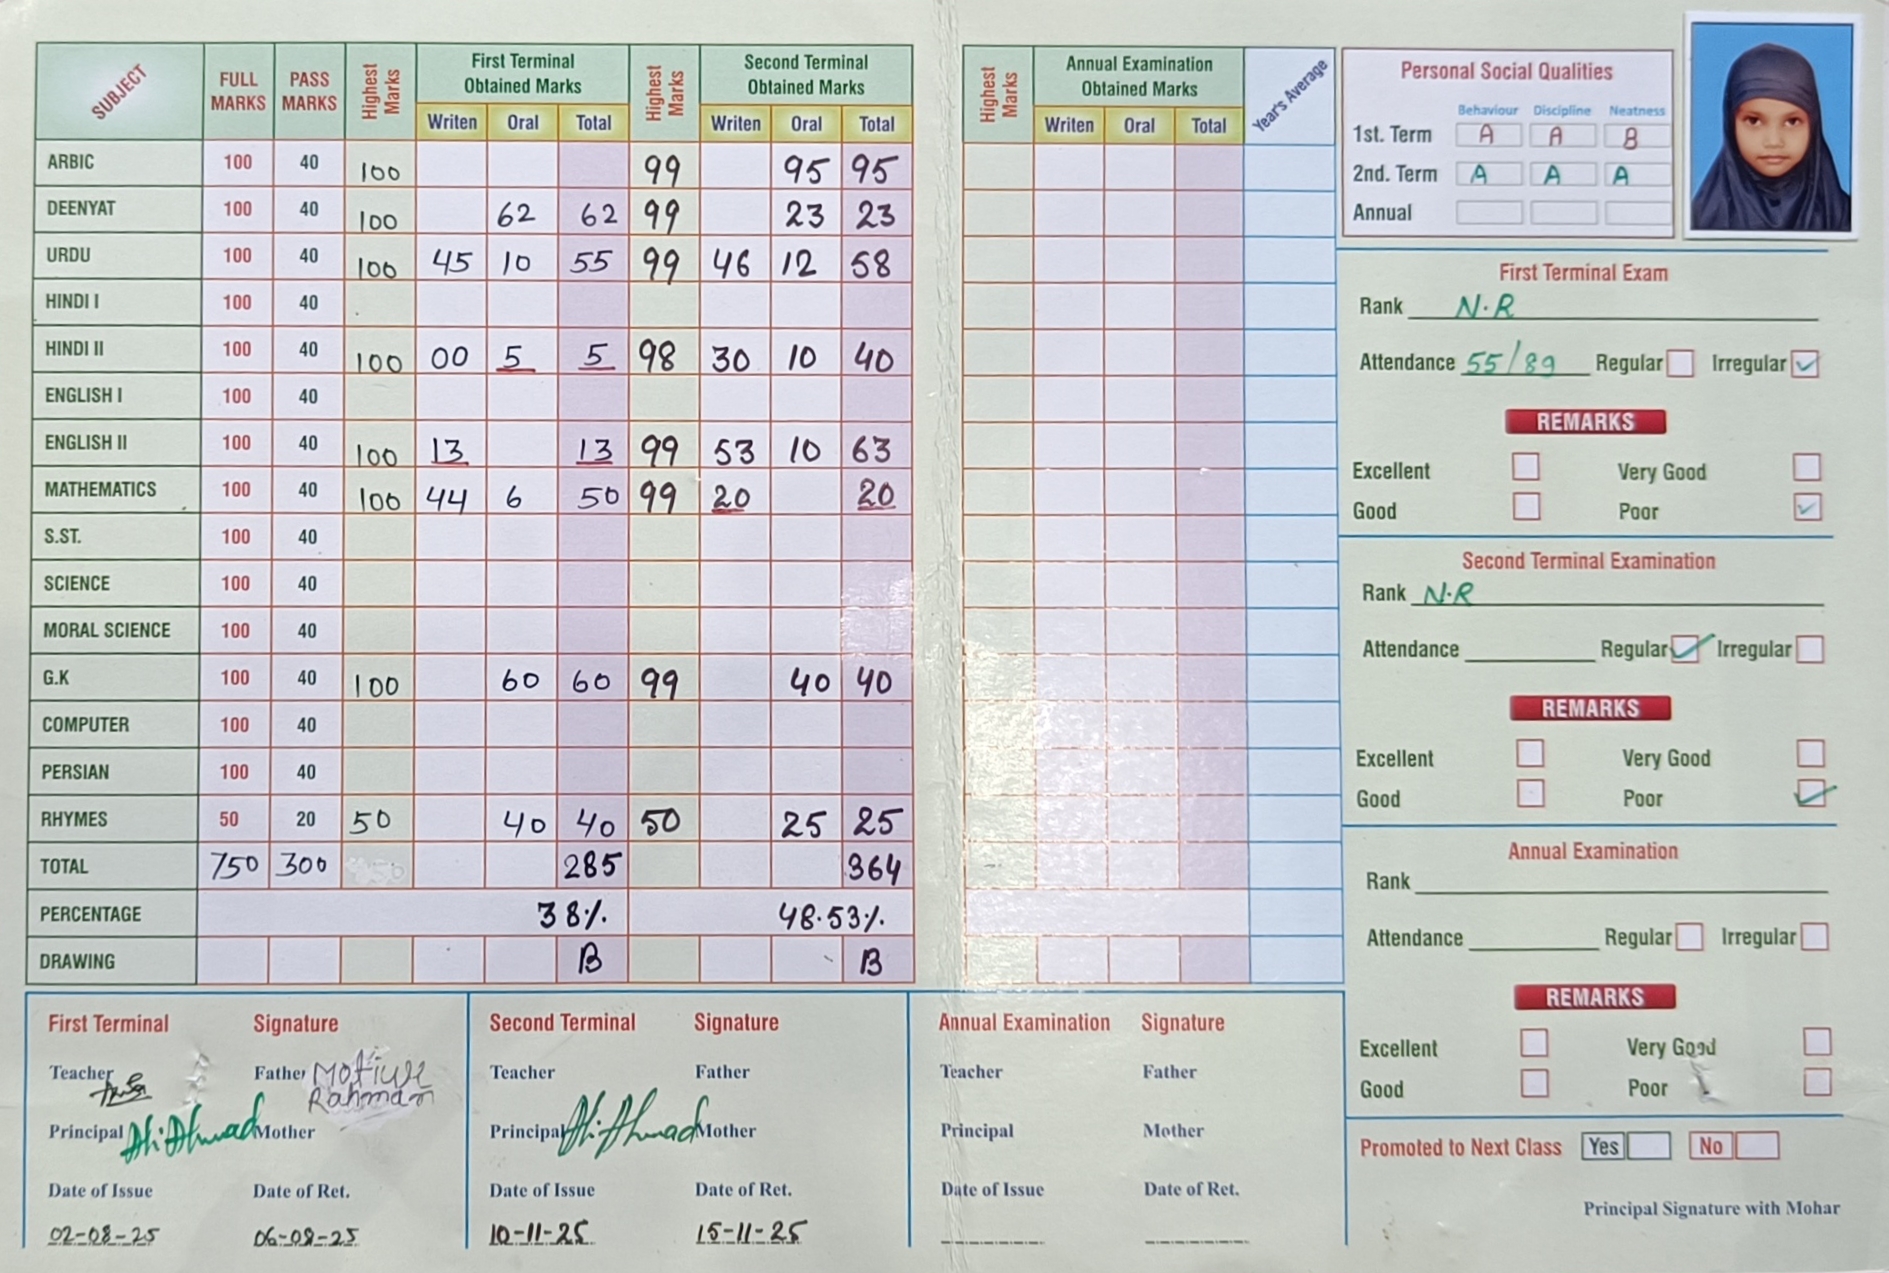 SUBJECT FULL MARKS PASS MARKS Highest Marks First Terminal Obtained Marks Writen Oral Total Highest Marks Second Terminal Obtained Marks Writen Oral Total Highest Marks Annual Examination Obtained Marks Writen Oral Total Year's Average
ARBIC 100 40 100 99 95 95
DEENYAT 100 40 100 62 62 99 23 23
URDU 100 40 100 45 10 55 99 46 12 58
HINDI I 100 40
HINDI II 100 40 100 00 5 5 98 30 10 40
ENGLISH I 100 40
ENGLISH II 100 40 100 13 13 99 53 10 63
MATHEMATICS 100 40 100 44 6 50 99 20 20
S.ST. 100 40
SCIENCE 100 40
MORAL SCIENCE 100 40
G.K 100 40 100 60 60 99 40 40
COMPUTER 100 40
PERSIAN 100 40
RHYMES 50 20 50 40 40 50 25 25
TOTAL 750 300 285 364
PERCENTAGE 38% 48.53%
DRAWING B B
Personal Social Qualities
Behaviour Discipline Neatness
1st. Term A A B
2nd. Term A A A
Annual
First Terminal Exam
Rank N.R
Attendance 55/89 Regular Irregular ✓
REMARKS
Excellent Very Good
Good Poor ✓
Second Terminal Examination
Rank N.R
Attendance Regular ✓ Irregular
REMARKS
Excellent Very Good
Good Poor ✓
Annual Examination
Rank
Attendance Regular Irregular
REMARKS
Excellent Very Good
Good Poor
Promoted to Next Class Yes No
Principal Signature with Mohar
First Terminal Signature
Teacher Father Motiur Rahman
Principal Ali Ahmad Mother
Date of Issue Date of Ret.
02-08-25 06-08-25
Second Terminal Signature
Teacher Father
Principal Ali Ahmad Mother
Date of Issue Date of Ret.
10-11-25 15-11-25
Annual Examination Signature
Teacher Father
Principal Mother
Date of Issue Date of Ret.